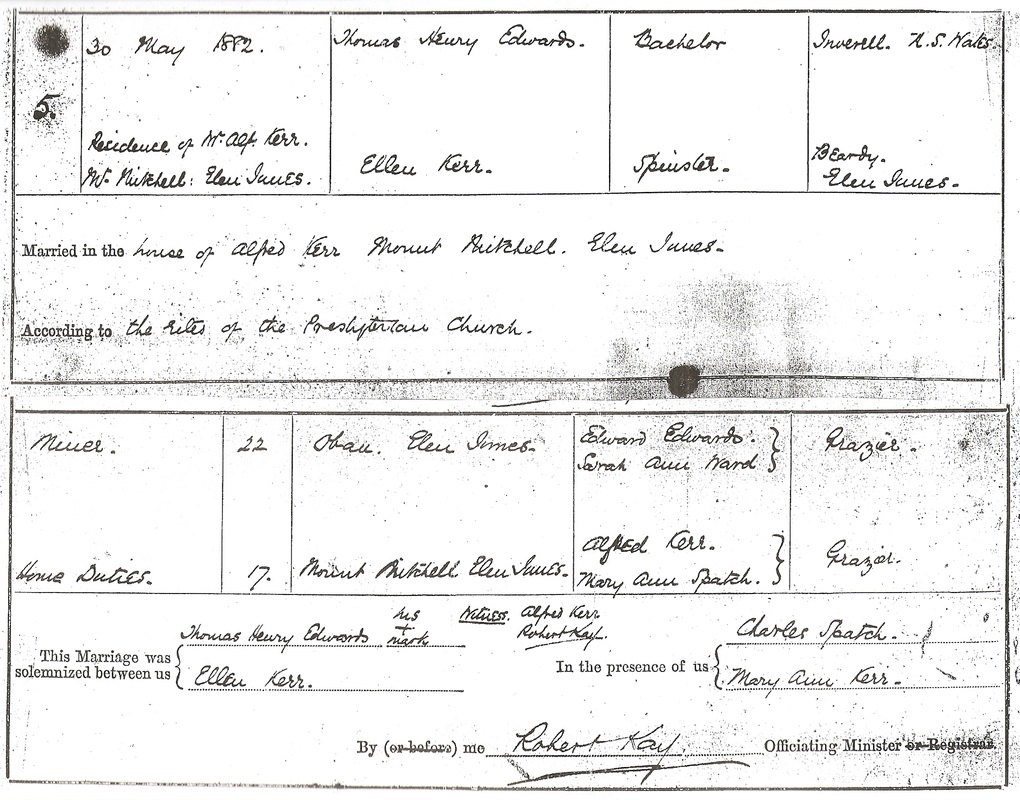 30 May 1882. Thomas Henry Edwards. Bachelor Inverell. N.S. Wales.
5.
Residence of Mr. Alf. Kerr. Ellen Kerr. Spinster. Beardy.
Mt. Mitchell: Elen Innes. Elen Innes.
Married in the house of Alfred Kerr Mount Mitchell. Elen Innes.
According to the rites of the Presbyterian Church.
Miner. 22 Oban. Elen Innes. Edward Edwards. } Grazier.
Sarah Ann Ward
Alfred Kerr. } Grazier.
Home Duties. 17. Mount Mitchell Elen Innes. Mary Ann Spatch.
his Witness. Alfred Kerr
Thomas Henry Edwards + mark Robert Kay. Charles Spatch.
This Marriage was solemnized between us { In the presence of us {
Ellen Kerr. Mary Ann Kerr.
By (or before) me Robert Kay. Officiating Minister or Registrar.